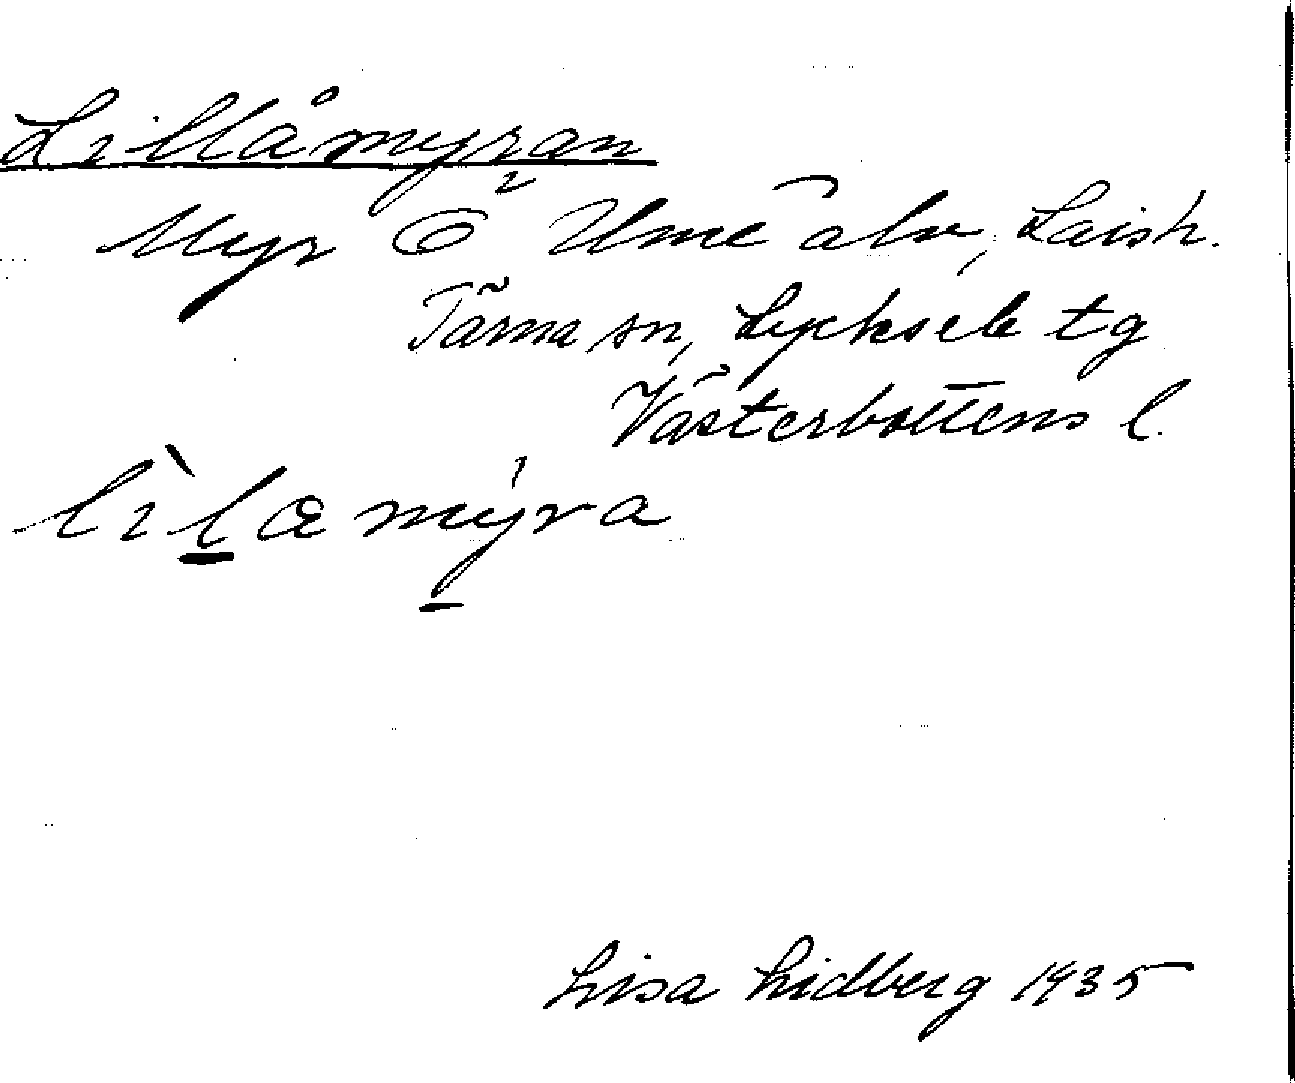 Lillåmyran
Myr Ö Ume älv, Laish.
Tärna sn, Lycksele tg
Västerbottens l.
lìlæmýra
Lisa Lidberg 1935